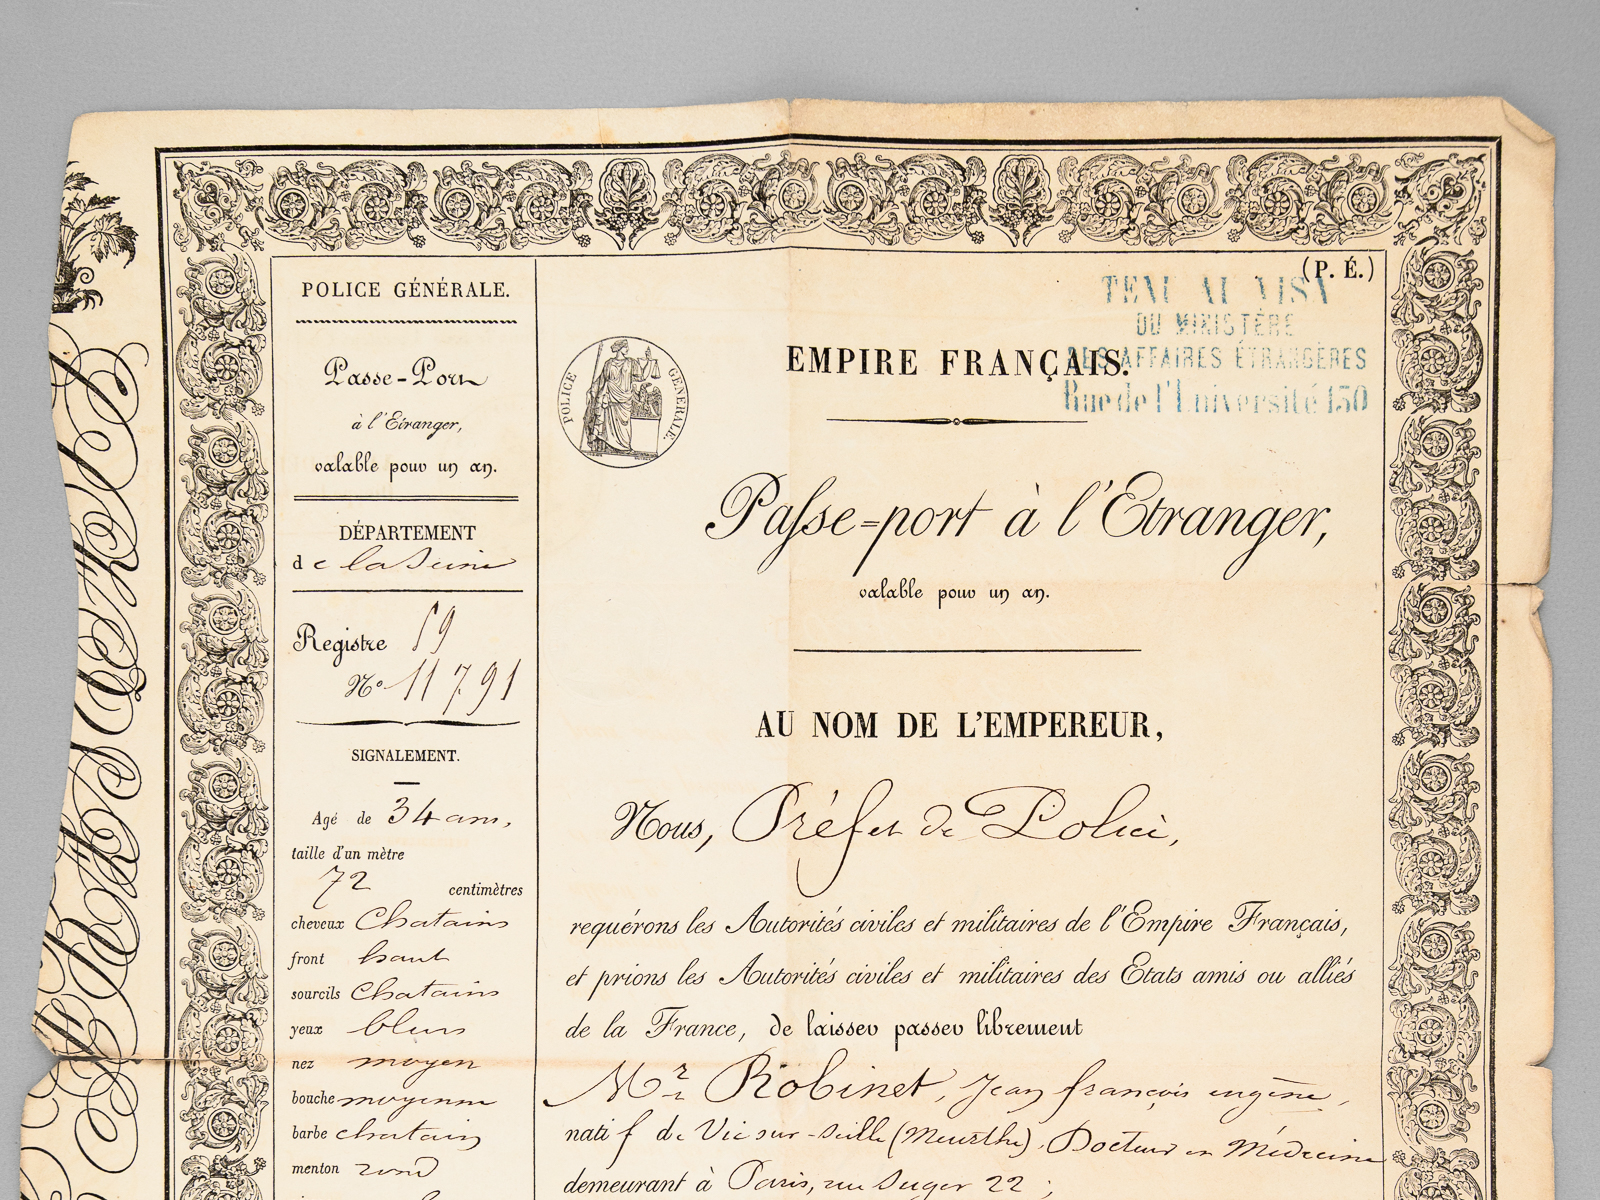 POLICE GÉNÉRALE.
Passe-Port
à l'Etranger,
valable pour un an.
DÉPARTEMENT
de la Seine
Registre 59
No 11791
SIGNALEMENT.
Agé de 34 ans,
taille d'un mètre
72 centimètres
cheveux Chatains
front haut
sourcils Chatains
yeux bleus
nez moyen
bouche moyenne
barbe chatain
menton rond
POLICE GÉNÉRALE.
(P. É.)
TENU AU VISA
DU MINISTÈRE
DES AFFAIRES ÉTRANGÈRES
Rue de l'Université 130
EMPIRE FRANÇAIS.
Passe-port à l'Etranger,
valable pour un an.
AU NOM DE L'EMPEREUR,
Nous, Préfet de Police,
requérons les Autorités civiles et militaires de l'Empire Français,
et prions les Autorités civiles et militaires des Etats amis ou alliés
de la France, de laisser passer librement
Mr Robinet, Jean françois eugène,
natif de Vic sur-Seille (Meurthe), Docteur en Médecine
demeurant à Paris, rue Suger 22 ;